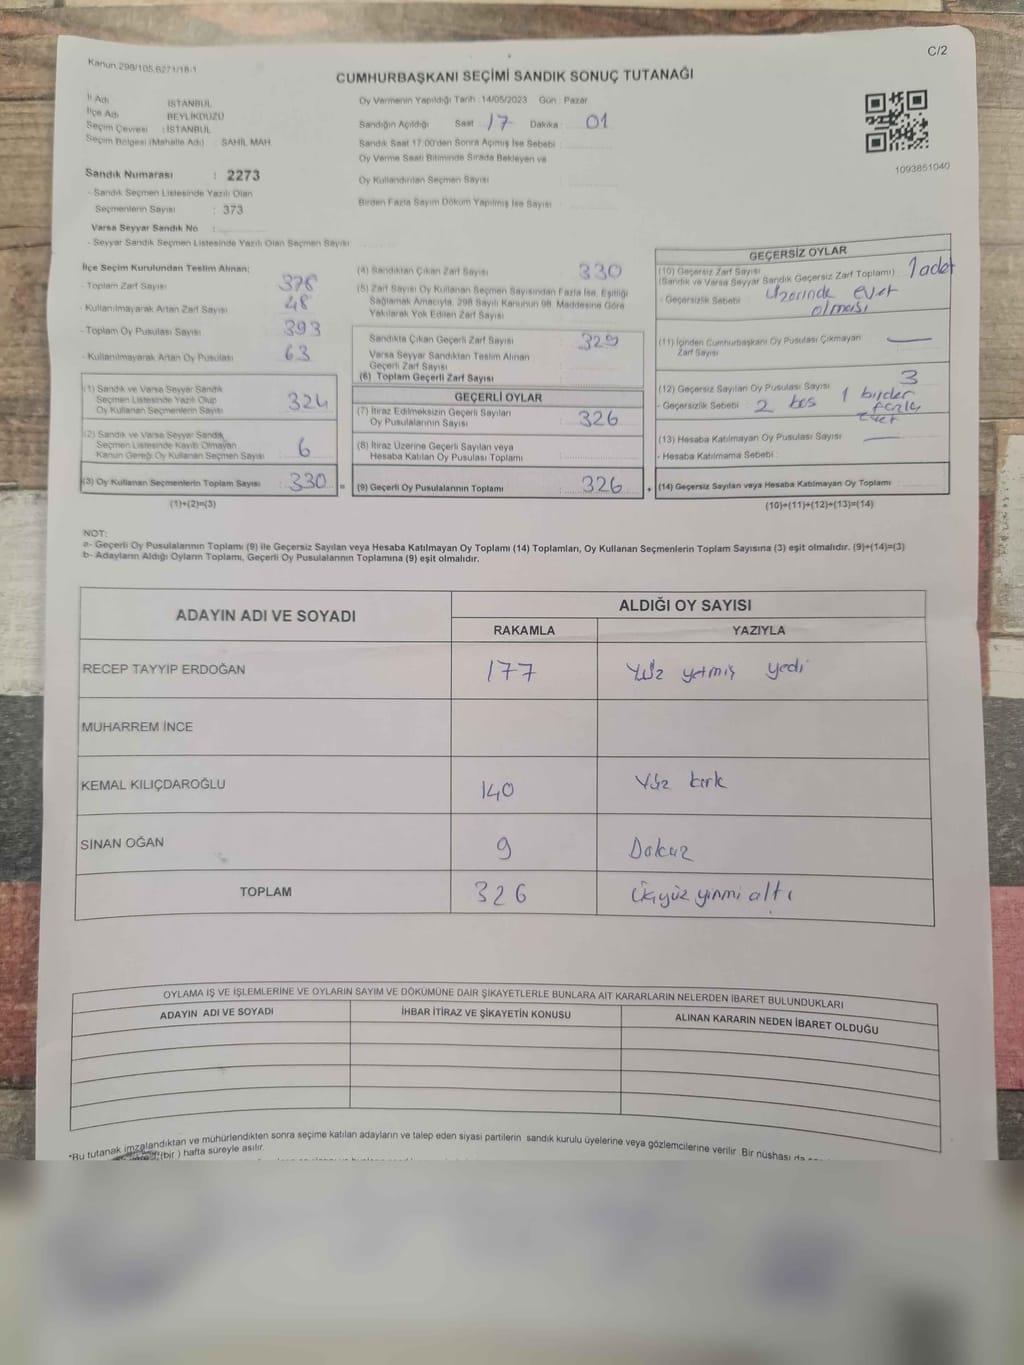 C/2
Kanun.298/105,6271/18-1
CUMHURBAŞKANI SEÇİMİ SANDIK SONUÇ TUTANAĞI
İl Adı İSTANBUL
İlçe Adı BEYLİKDÜZÜ
Seçim Çevresi : İSTANBUL
Seçim Bölgesi (Mahalle Adı) SAHİL MAH.
Oy Vermenin Yapıldığı Tarih :14/05/2023 Gün : Pazar
Sandığın Açıldığı Saat 17 Dakika 01
Sandık Saat 17.00'den Sonra Açımış İse Sebebi :
Oy Verme Saati Bitiminde Sırada Bekleyen ve
Oy Kullandırılan Seçmen Sayısı
Birden Fazla Sayım Döküm Yapılmış İse Sayısı :
1093851040
Sandık Numarası : 2273
- Sandık Seçmen Listesinde Yazılı Olan
Seçmenlerin Sayısı : 373
Varsa Seyyar Sandık No :
- Seyyar Sandık Seçmen Listesinde Yazılı Olan Seçmen Sayısı
İlçe Seçim Kurulundan Teslim Alınan;
- Toplam Zarf Sayısı 378
- Kullanılmayarak Artan Zarf Sayısı 48
- Toplam Oy Pusulası Sayısı 393
- Kullanılmayarak Artan Oy Pusulası 63
(1) Sandık ve Varsa Seyyar Sandık
Seçmen Listesinde Yazılı Olup
Oy Kullanan Seçmenlerin Sayısı 324
(2) Sandık ve Varsa Seyyar Sandık
Seçmen Listesinde Kayıtlı Olmayan
Kanun Gereği Oy Kullanan Seçmen Sayısı 6
(3) Oy Kullanan Seçmenlerin Toplam Sayısı 330 =
(1)+(2)=(3)
(4) Sandıktan Çıkan Zarf Sayısı 330
(5) Zarf Sayısı Oy Kullanan Seçmen Sayısından Fazla İse, Eşitliği
Sağlamak Amacıyla, 298 Sayılı Kanunun 98. Maddesine Göre
Yakılarak Yok Edilen Zarf Sayısı
Sandıkta Çıkan Geçerli Zarf Sayısı 329
Varsa Seyyar Sandıktan Teslim Alınan
Geçerli Zarf Sayısı
(6) Toplam Geçerli Zarf Sayısı
GEÇERLİ OYLAR
(7) İtiraz Edilmeksizin Geçerli Sayılan
Oy Pusulalarının Sayısı 326
(8) İtiraz Üzerine Geçerli Sayılan veya
Hesaba Katılan Oy Pusulası Toplamı
(9) Geçerli Oy Pusulalarının Toplamı 326 +
GEÇERSİZ OYLAR
(10) Geçersiz Zarf Sayısı
(Sandık ve Varsa Seyyar Sandık Geçersiz Zarf Toplamı) 1 adet
- Geçersizlik Sebebi : Üzerinde evet
olması
(11) İçinden Cumhurbaşkanı Oy Pusulası Çıkmayan
Zarf Sayısı
(12) Geçersiz Sayılan Oy Pusulası Sayısı 3
- Geçersizlik Sebebi : 2 boş 1 birden
fazla
evet
(13) Hesaba Katılmayan Oy Pusulası Sayısı
- Hesaba Katılmama Sebebi :
(14) Geçersiz Sayılan veya Hesaba Katılmayan Oy Toplamı
(10)+(11)+(12)+(13)=(14)
NOT:
a- Geçerli Oy Pusulalarının Toplamı (9) ile Geçersiz Sayılan veya Hesaba Katılmayan Oy Toplamı (14) Toplamları, Oy Kullanan Seçmenlerin Toplam Sayısına (3) eşit olmalıdır. (9)+(14)=(3)
b- Adayların Aldığı Oyların Toplamı, Geçerli Oy Pusulalarının Toplamına (9) eşit olmalıdır.
ADAYIN ADI VE SOYADI ALDIĞI OY SAYISI
RAKAMLA YAZIYLA
RECEP TAYYİP ERDOĞAN 177 Yüz yetmiş yedi
MUHARREM İNCE
KEMAL KILIÇDAROĞLU 140 Yüz kırk
SİNAN OĞAN 9 Dokuz
TOPLAM 326 Üçyüz yirmi altı
OYLAMA İŞ VE İŞLEMLERİNE VE OYLARIN SAYIM VE DÖKÜMÜNE DAİR ŞİKAYETLERLE BUNLARA AİT KARARLARIN NELERDEN İBARET BULUNDUKLARI
ADAYIN ADI VE SOYADI İHBAR İTİRAZ VE ŞİKAYETİN KONUSU ALINAN KARARIN NEDEN İBARET OLDUĞU
*Bu tutanak imzalandıktan ve mühürlendikten sonra seçime katılan adayların ve talep eden siyasi partilerin sandık kurulu üyelerine veya gözlemcilerine verilir. Bir nüshası da
(bir ) hafta süreyle asılır.